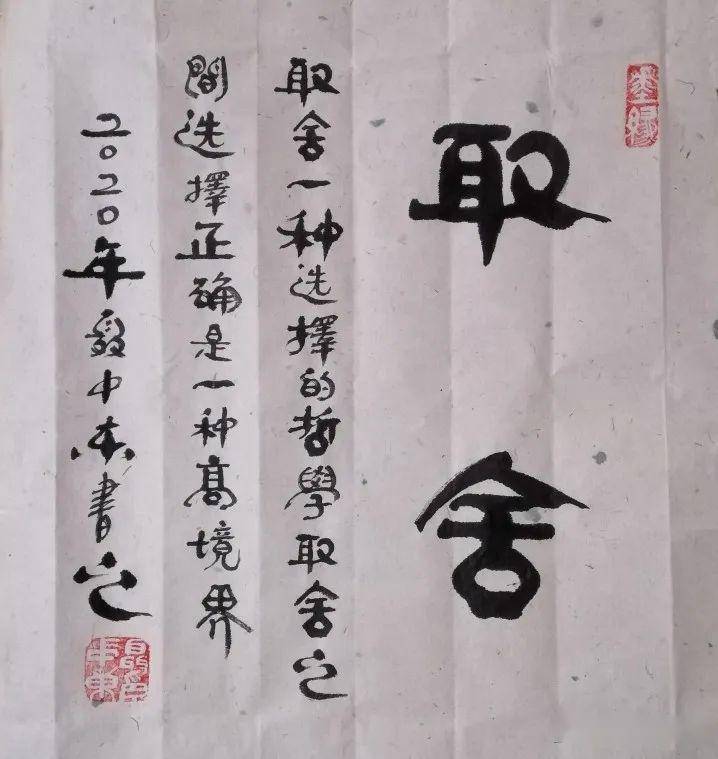 墨緣
取舍
取舍一种选擇的哲學取舍之
間选擇正确是一种高境界
二〇二〇年聂中东書之